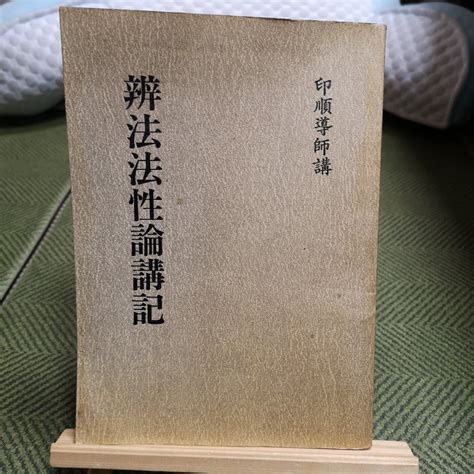 印順導師講
辨法法性論講記